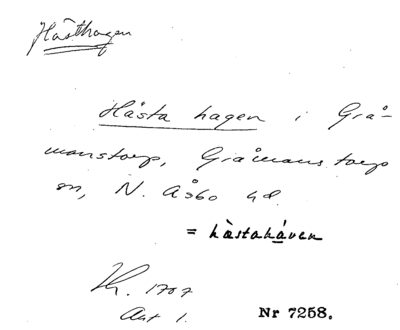 Hästhagen
Hästa hagen i Grå-
manstorp, Gråmans torp
sn, N. Åsbo hd.
= hästahåven
Kh. 1707
Akt 1.
Nr 7258.